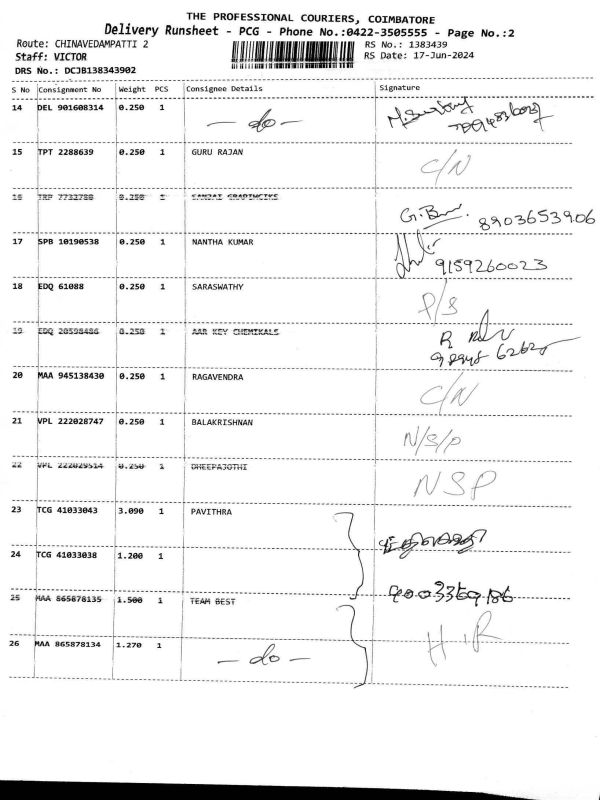 THE PROFESSIONAL COURIERS, COIMBATORE
Delivery Runsheet - PCG - Phone No.:0422-3505555 - Page No.:2
Route: CHINAVEDAMPATTI 2 RS No.: 1383439
Staff: VICTOR RS Date: 17-Jun-2024
DRS No.: DCJB138343902
S No Consignment No Weight PCS Consignee Details Signature
14 DEL 901608314 0.250 1 — do —
15 TPT 2288639 0.250 1 GURU RAJAN C/N
16 TRP 7732780 0.250 1
G. 8903653906
17 SPB 10190538 0.250 1 NANTHA KUMAR
9159260023
18 EDQ 61088 0.250 1 SARASWATHY P/S
19 EDQ 20598486 0.250 1 AAR KEY CHEMIKALS R
20 MAA 945138430 0.250 1 RAGAVENDRA C/N
21 VPL 222028747 0.250 1 BALAKRISHNAN N/S/P
22 VPL 222029514 0.250 1 DHEEPAJOTHI NSP
23 TCG 41033043 3.090 1 PAVITHRA
24 TCG 41033038 1.200 1
9003369186
25 MAA 865878135 1.500 1 TEAM BEST
26 MAA 865878134 1.270 1 — do —